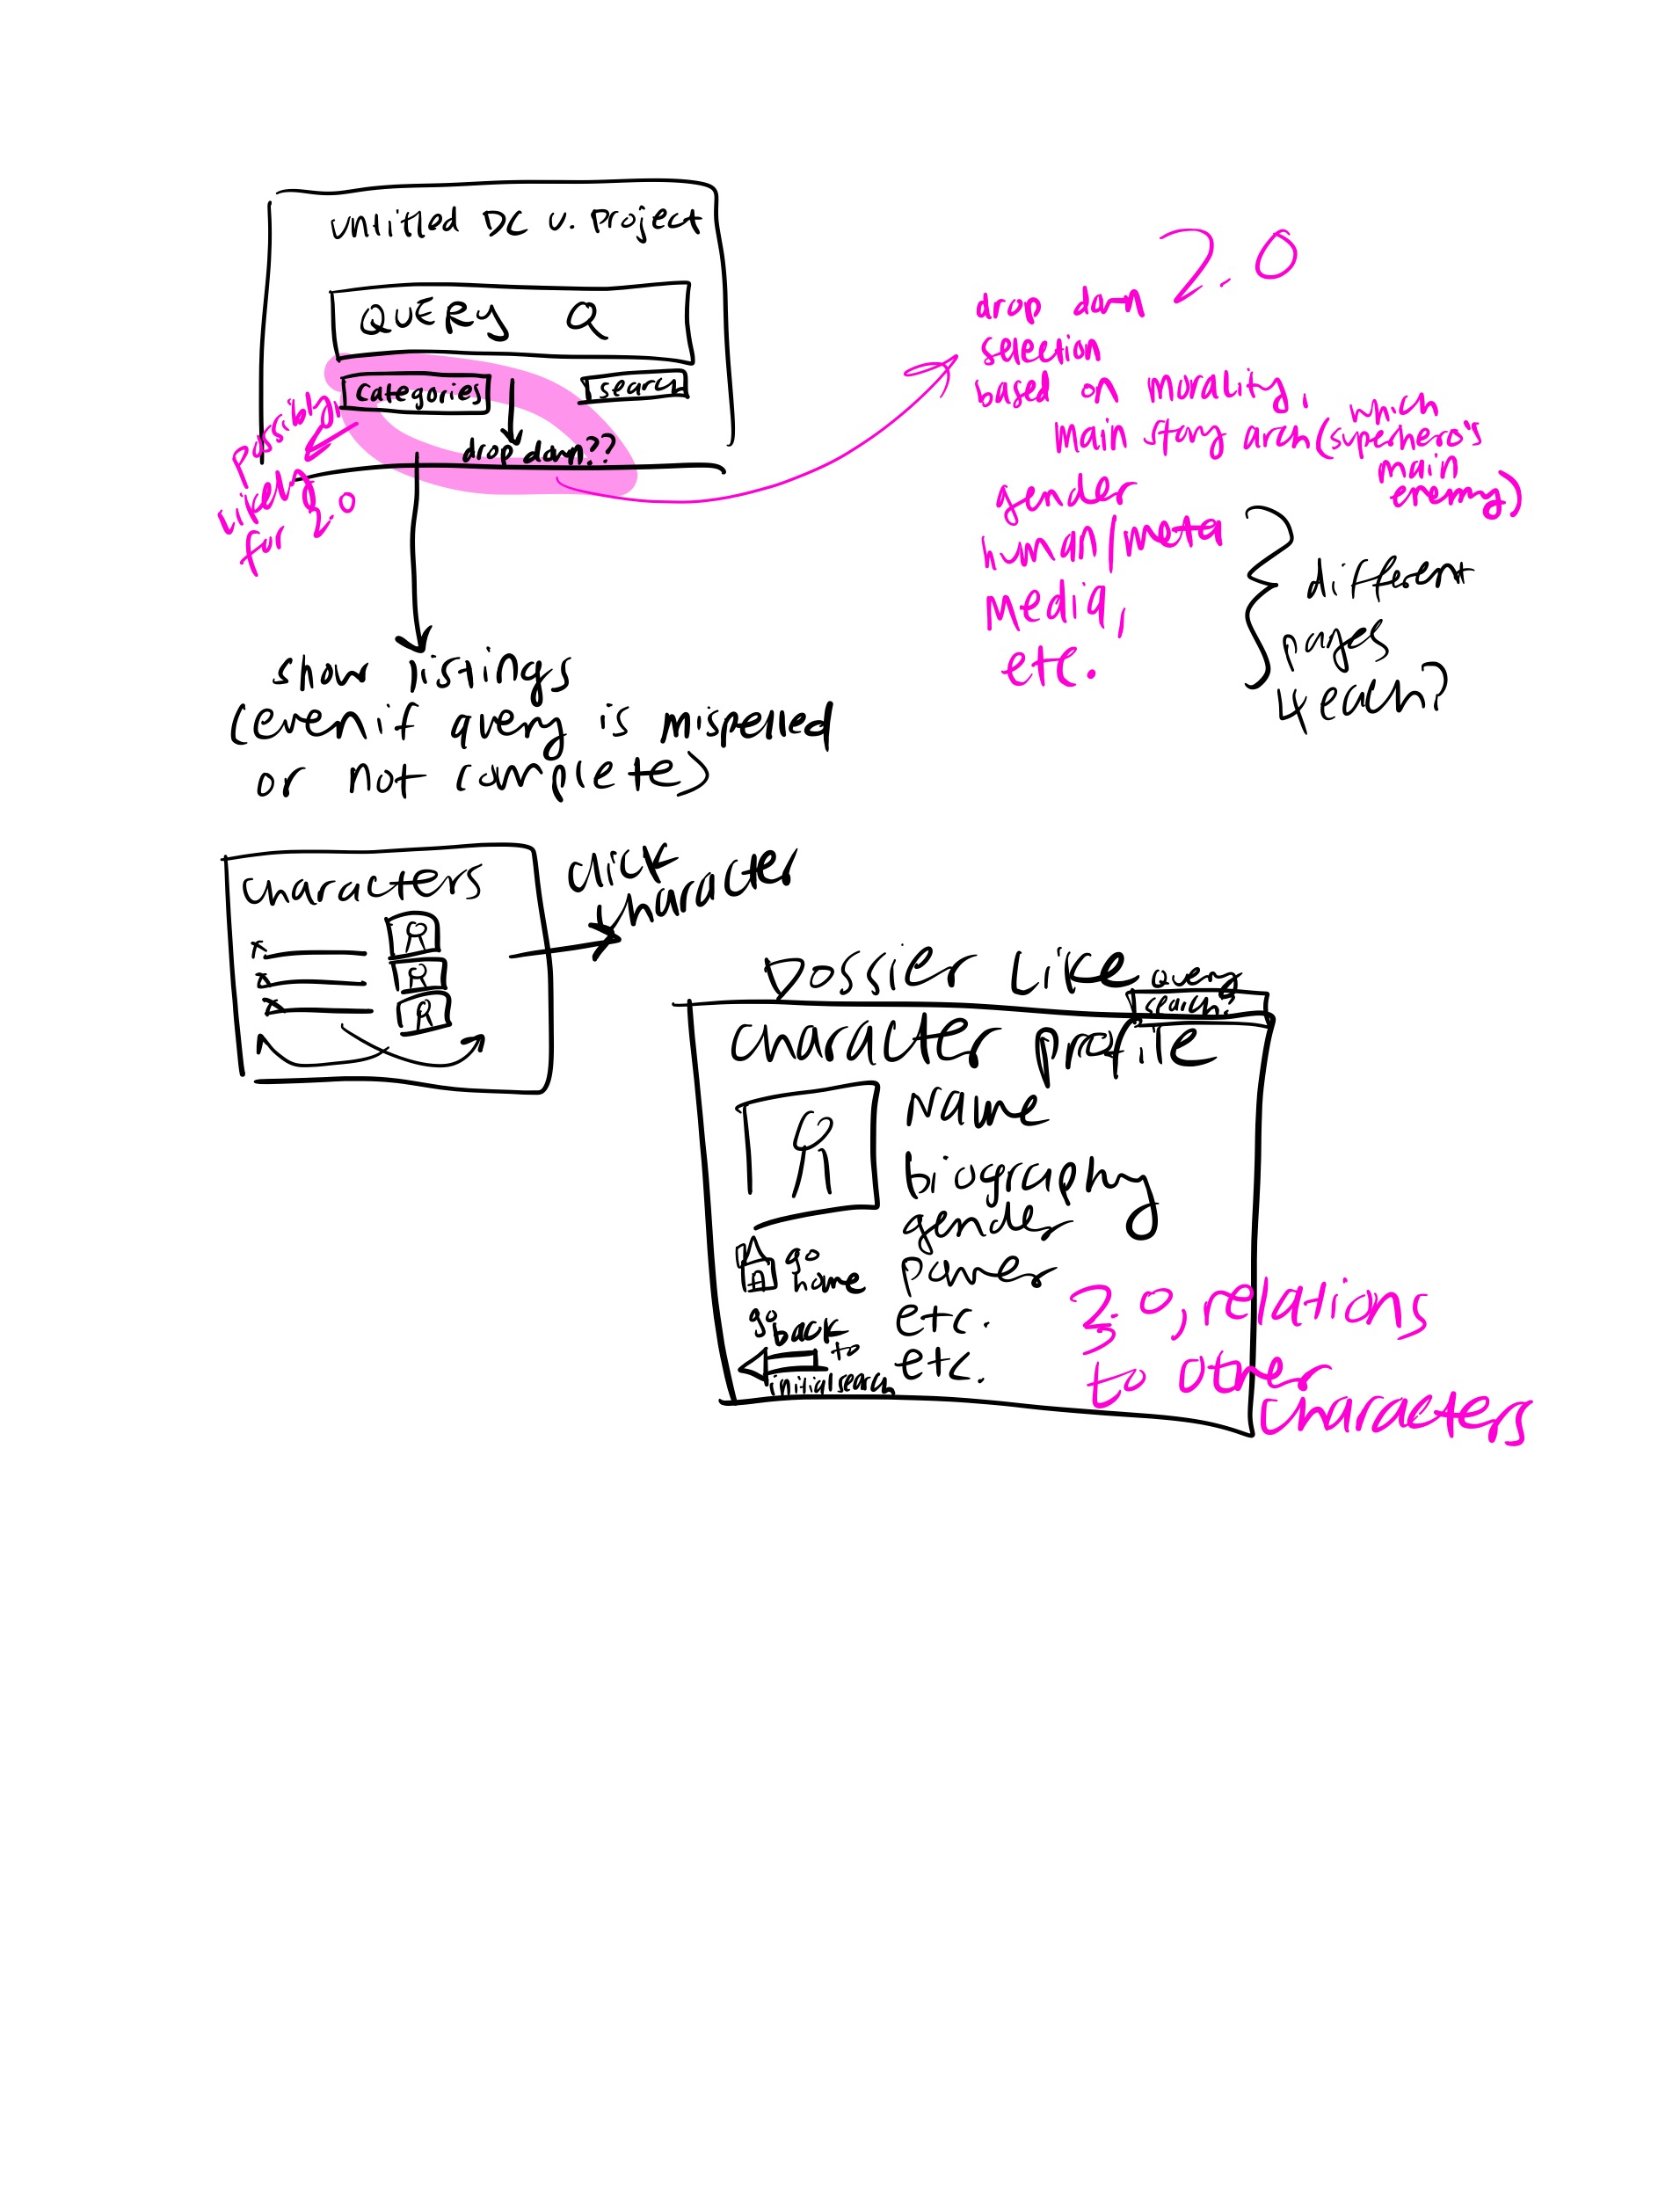 untitled DC U. Project
QUERY
categories
search
drop down??
Possibly,
likely
for 2.0
2.0
drop down
selection
based on morality,
main story arch (which
superhero's
main
enemy)
gender
human/meta
media,
etc.
different
pages
4 each?
show listings
(even if query is mispelled
or not complete)
characters
click
character
Dossier Like
Query
search
character profile
Name
biography
gender
power
etc.
etc.
go
home
go
back
to
initial search
2.0, relations
to other
characters